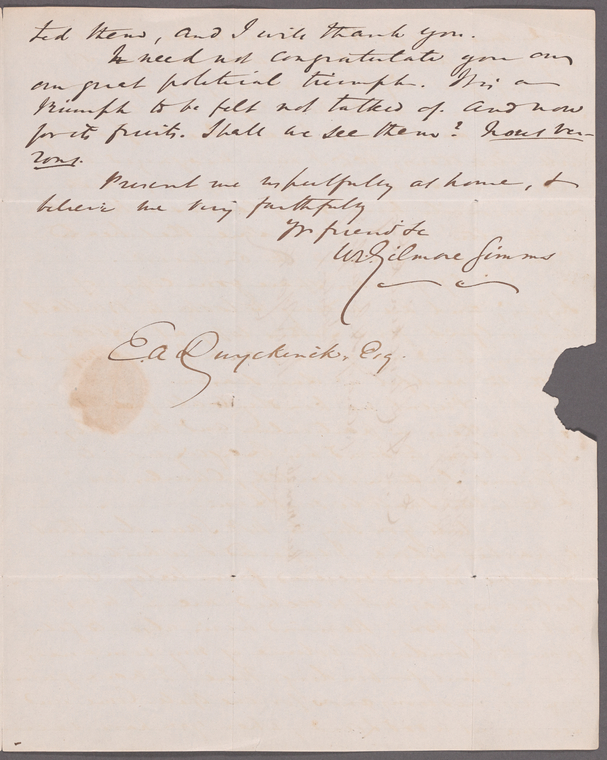 ted them, and I will thank you.
I need not congratulate you on
our great political triumph. It is a
triumph to be felt not talked of. And now
for its fruits. Shall we see them? Nous ver-
rons.
Present me respectfully at home, &
believe me very faithfully
Yr friend &c
W. Gilmore Simms
E. A. Duyckinck, Esq.